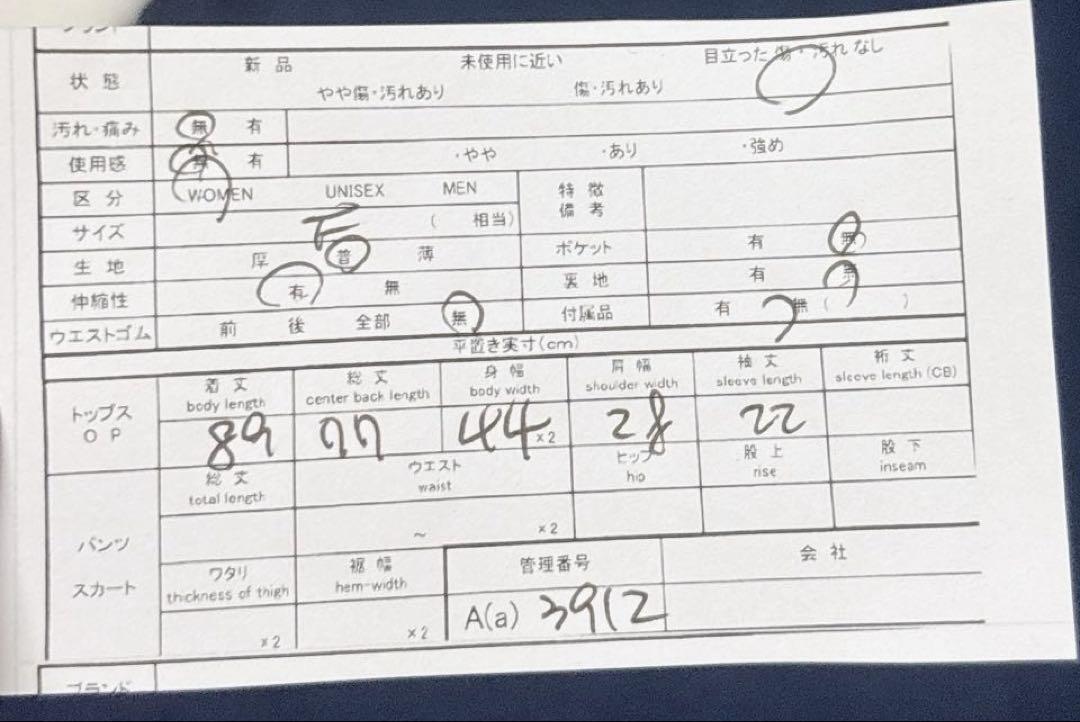 状態 新品 未使用に近い 目立った傷・汚れなし
やや傷・汚れあり 傷・汚れあり
汚れ・痛み 無 有
使用感 無 有 ・やや ・あり ・強め
区分 WOMEN UNISEX MEN 特徴
備考
サイズ F ( 相当)
生地 厚 普 薄 ポケット 有 無)
伸縮性 有 無 裏地 有 無
ウエストゴム 前 後 全部 無 付属品 有 無 ( )
平置き実寸(cm)
トップス
OP
着丈 総丈 身幅 肩幅 袖丈 裄丈
body length center back length body width shoulder width sleeve length sleeve length (CB)
89 77 44 ×2 28 22
総丈 ウエスト ヒップ 股上 股下
total length waist hip rise inseam
パンツ ~ ×2
スカート
ワタリ 裾幅 管理番号 会社
thickness of thigh hem-width
×2 ×2 A(a) 3912
ブランド